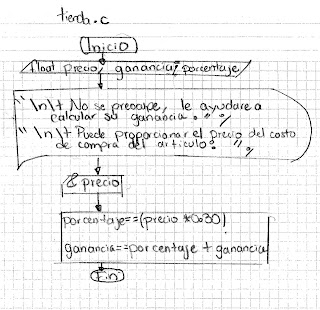 tienda.c
Inicio
float precio, ganancia, porcentaje
"\n\t No se preocupe, le ayudare a
calcular su ganancia. "
"\n\t Puede proporcionar el precio del costo
de compra del articulo: "
& precio
porcentaje==(precio *0.30)
ganancia==porcentaje + ganancia
Fin